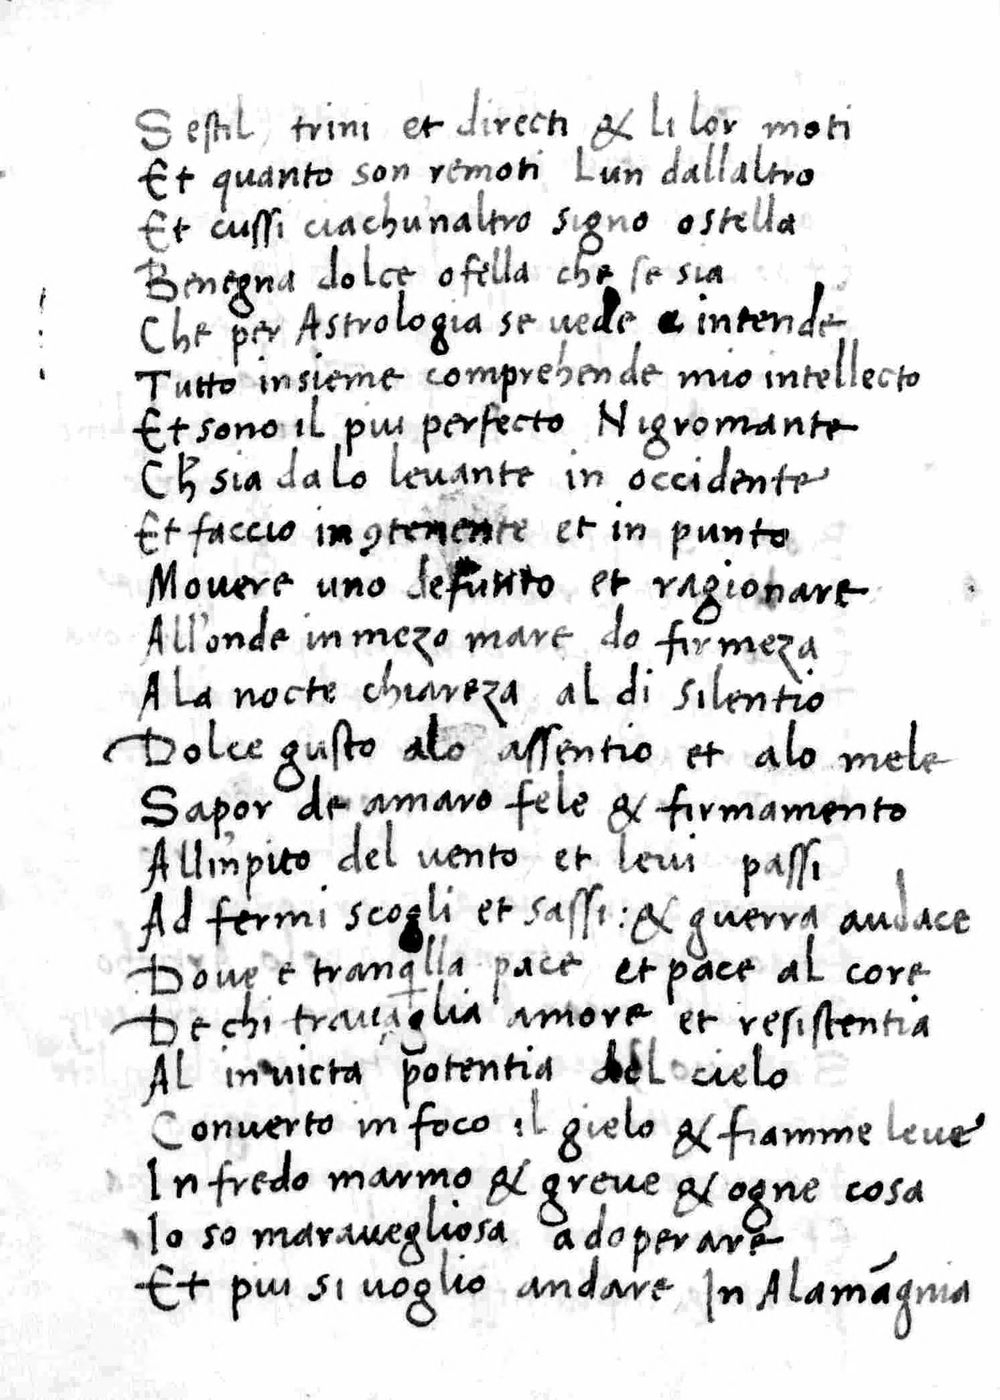 Sestil trini et directi & li lor moti
Et quanto son remoti Lun dallaltro
Et cussi ciachu'naltro signo o stella
Benegna dolce o fella che se sia
Che per Astrologia se uede e intende
Tutto insieme comprehende mio intellecto
Et sono il piu perfecto Nigromante
Ch̃ sia da lo leuante in occidente
Et faccio in ꝯtenente et in punto
Mouere uno defunto et ragionare
All'onde in mezo mare do firmeza
A la nocte chiareza al di silentio
Dolce gusto alo assentio et alo mele
Sapor de amaro fele & firmamento
All'inpito del uento et leui passi
Ad fermi scogli et sassi: & guerra audace
Doue e tranqlla pace et pace al core
De chi trauaglia amore et resistentia
Al inuicta potentia del cielo
Conuerto in foco il gielo & fiamme leue
In fredo marmo & greue & ogne cosa
Io so marauegliosa adoperare
Et piu si uoglio andare In Alamãgnia